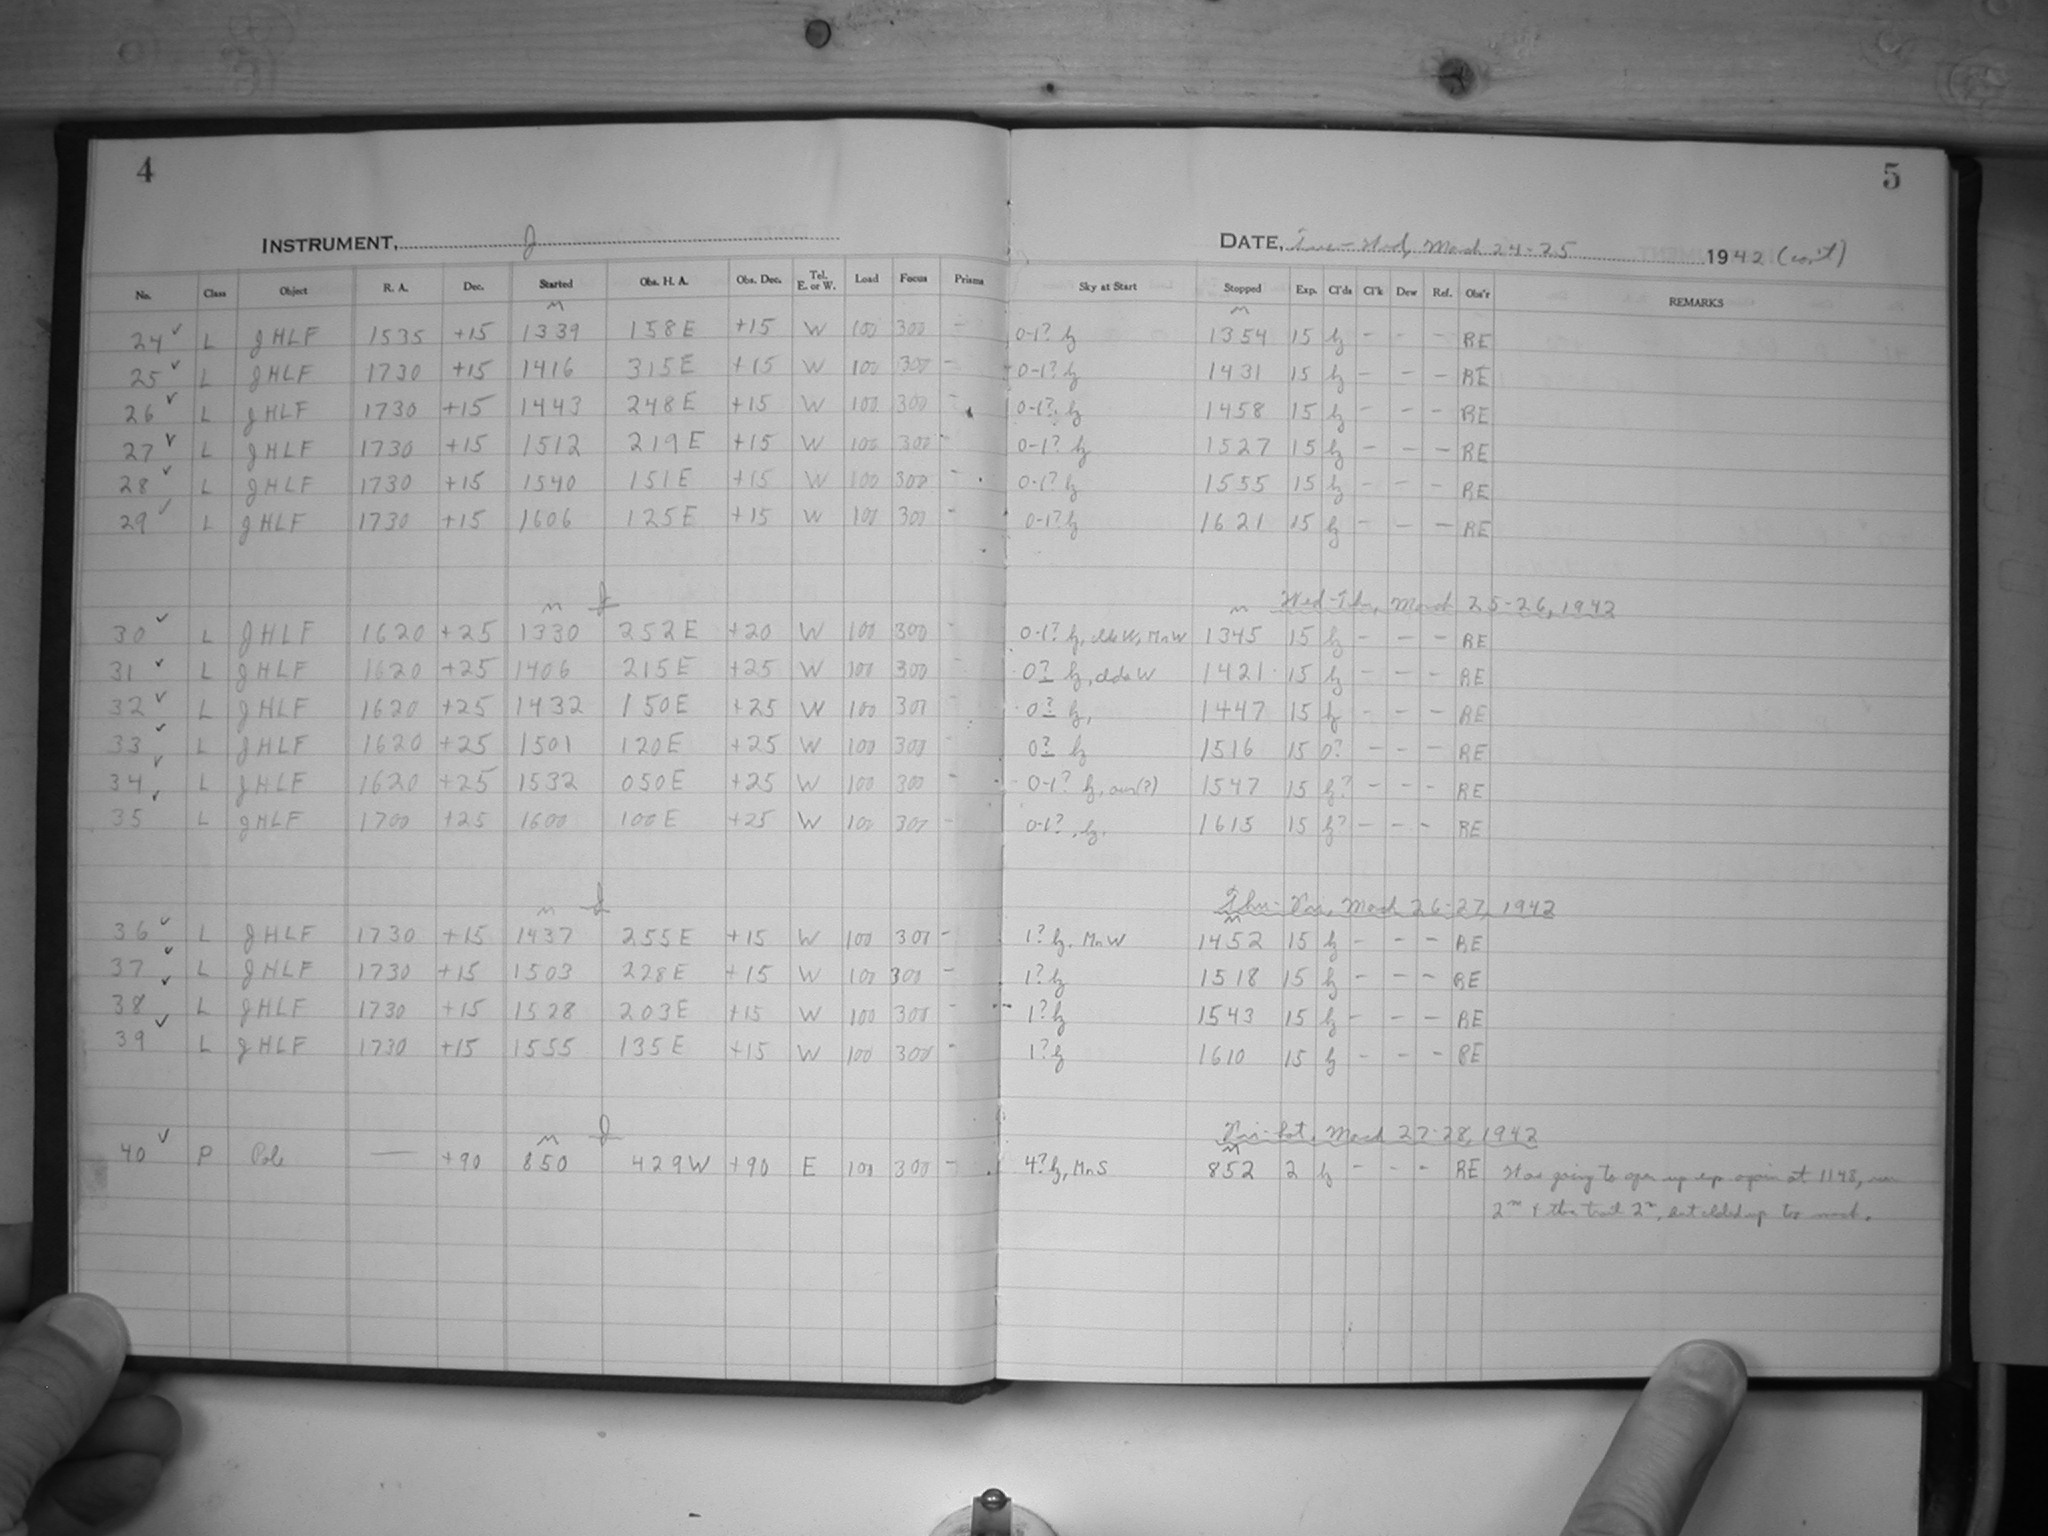 4 5
INSTRUMENT, J DATE, Tues-Wed, March 24-25 1942 (con't)
No. Class Object R. A. Dec. Started Obs. H. A. Obs. Dec. Tel. E. or W. Load Focus Prisms Sky at Start Stopped Exp. Cl'ds Cl'k Dew Ref. Obs'r REMARKS
m m
24 ✓ L JHLF 1535 +15 1339 158E +15 W 100 300 - 0-1? hz 1354 15 hz - - - RE
25 ✓ L JHLF 1730 +15 1416 315E +15 W 100 300 - 0-1? hz 1431 15 hz - - - RE
26 ✓ L JHLF 1730 +15 1443 248E +15 W 100 300 - 0-1? hz 1458 15 hz - - - RE
27 ✓ L JHLF 1730 +15 1512 219E +15 W 100 300 - 0-1? hz 1527 15 hz - - - RE
28 ✓ L JHLF 1730 +15 1540 151E +15 W 100 300 - 0-1? hz 1555 15 hz - - - RE
29 ✓ L JHLF 1730 +15 1606 125E +15 W 100 300 - 0-1? hz 1621 15 hz - - - RE
m J m Wed-Thu, March 25-26, 1942
30 ✓ L JHLF 1620 +25 1330 252E +20 W 100 300 - 0-1? hz, clds W, Mn W 1345 15 hz - - - RE
31 ✓ L JHLF 1620 +25 1406 215E +25 W 100 300 - 0? hz, clds W 1421 15 hz - - - RE
32 ✓ L JHLF 1620 +25 1432 150E +25 W 100 300 - 0? hz, 1447 15 hz - - - RE
33 ✓ L JHLF 1620 +25 1501 120E +25 W 100 300 - 0? hz 1516 15 0? - - - RE
34 ✓ L JHLF 1620 +25 1532 050E +25 W 100 300 - 0-1? hz, aur(?) 1547 15 hz? - - - RE
35 ✓ L JHLF 1700 +25 1600 100E +25 W 100 300 - 0-1?, hz. 1615 15 hz? - - - RE
m J m Thu-Fri, March 26-27, 1942
36 ✓ L JHLF 1730 +15 1437 255E +15 W 100 300 - 1? hz, Mn W 1452 15 hz - - - RE
37 ✓ L JHLF 1730 +15 1503 228E +15 W 100 300 - 1? hz 1518 15 hz - - - RE
38 ✓ L JHLF 1730 +15 1528 203E +15 W 100 300 - 1? hz 1543 15 hz - - - RE
39 ✓ L JHLF 1730 +15 1555 135E +15 W 100 300 - 1? hz 1610 15 hz - - - RE
m J m Fri-Sat, March 27-28, 1942
40 ✓ P Pole — +90 850 429W +90 E 100 300 - 4? hz, Mn S 852 2 hz - - - RE Was going to open up exp again at 1148, run
2m & then trail 2m, but clded up too much.